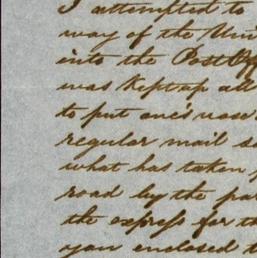 I attempted to
way of the Uni
into the Post Of
was Kept up all
to put one's nose
regular mail s
what has taken p
road by the par
the express for th
you enclosed t